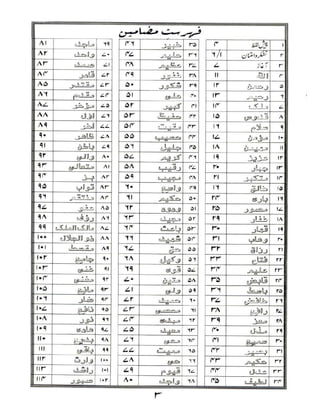 فہرست مضامین
۱ پیش لفظ ۴ ۳۵ خبیر ۴۶ ۶۹ ماجد ۸۱
۲ تشکر و امتنان ۶/۱ ۳۶ حلیم ۴۷ ۷۰ واحد ۸۲
۳ آغاز ۷ ۳۷ عظیم ۴۸ ۷۱ صمد ۸۳
۴ اللہ ۱۱ ۳۸ غفور ۴۹ ۷۲ قادر ۸۴
۵ رحمن ۱۲ ۳۹ شکور ۵۰ ۷۳ مقتدر ۸۵
۶ رحیم ۱۳ ۴۰ علی ۵۱ ۷۴ مقدم ۸۶
۷ ملک ۱۴ ۴۱ کبیر ۵۲ ۷۵ مؤخر ۸۷
۸ قدوس ۱۵ ۴۲ حفیظ ۵۳ ۷۶ اول ۸۸
۹ سلام ۱۶ ۴۳ مقیت ۵۴ ۷۷ آخر ۸۹
۱۰ مومن ۱۷ ۴۴ حسیب ۵۵ ۷۸ ظاہر ۹۰
۱۱ مہیمن ۱۸ ۴۵ جلیل ۵۶ ۷۹ باطن ۹۱
۱۲ عزیز ۱۹ ۴۶ کریم ۵۷ ۸۰ والی ۹۲
۱۳ جبار ۲۰ ۴۷ رقیب ۵۸ ۸۱ متعالی ۹۳
۱۴ متکبر ۲۱ ۴۸ مجیب ۵۹ ۸۲ بر ۹۴
۱۵ خالق ۴۹ واسع ۶۰ ۸۳ تواب ۹۵
۱۶ باری ۲۴ ۵۰ حکیم ۶۱ ۸۴ منتقم ۹۶
۱۷ مصور ۲۵ ۵۱ ودود ۶۲ ۸۵ عفو ۹۷
۱۸ غفار ۲۹ ۵۲ مجید ۶۳ ۸۶ رؤف ۹۸
۱۹ قہار ۳۰ ۵۳ باعث ۶۴ ۸۷ مالک الملک ۹۹
۲۰ وہاب ۳۱ ۵۴ شہید ۶۶ ۸۸ ذوالجلال ۱۰۰
۲۱ رزاق ۳۲ ۵۵ حق ۶۷ ۸۹ مقسط ۱۰۱
۲۲ فتاح ۳۳ ۵۶ وکیل ۶۸ ۹۰ جامع ۱۰۲
۲۳ علیم ۳۴ ۵۷ قوی ۶۹ ۹۱ غنی ۱۰۳
۲۴ قابض ۳۵ ۵۸ متین ۷۰ ۹۲ مغنی ۱۰۴
۲۵ باسط ۳۶ ۵۹ ولی ۷۱ ۹۳ مانع ۱۰۵
۲۶ خافض ۳۷ ۶۰ حمید ۷۲ ۹۴ ضار ۱۰۶
۲۷ رافع ۳۸ ۶۱ محصی ۷۳ ۹۵ نافع ۱۰۷
۲۸ معز ۳۹ ۶۲ مبدی ۷۴ ۹۶ نور ۱۰۸
۲۹ مذل ۴۰ ۶۳ معید ۷۵ ۹۷ ہادی ۱۰۹
۳۰ سمیع ۴۱ ۶۴ محی ۷۶ ۹۸ بدیع ۱۱۰
۳۱ بصیر ۴۲ ۶۵ ممیت ۷۷ ۹۹ باقی ۱۱۱
۳۲ حکم ۴۳ ۶۶ حی ۷۸ ۱۰۰ وارث ۱۱۲
۳۳ عدل ۴۴ ۶۷ قیوم ۷۹ ۱۰۱ ۱۱۳
۳۴ لطیف ۴۵ ۶۸ واجد ۸۰ ۱۰۲ صبور ۱۱۴
۳